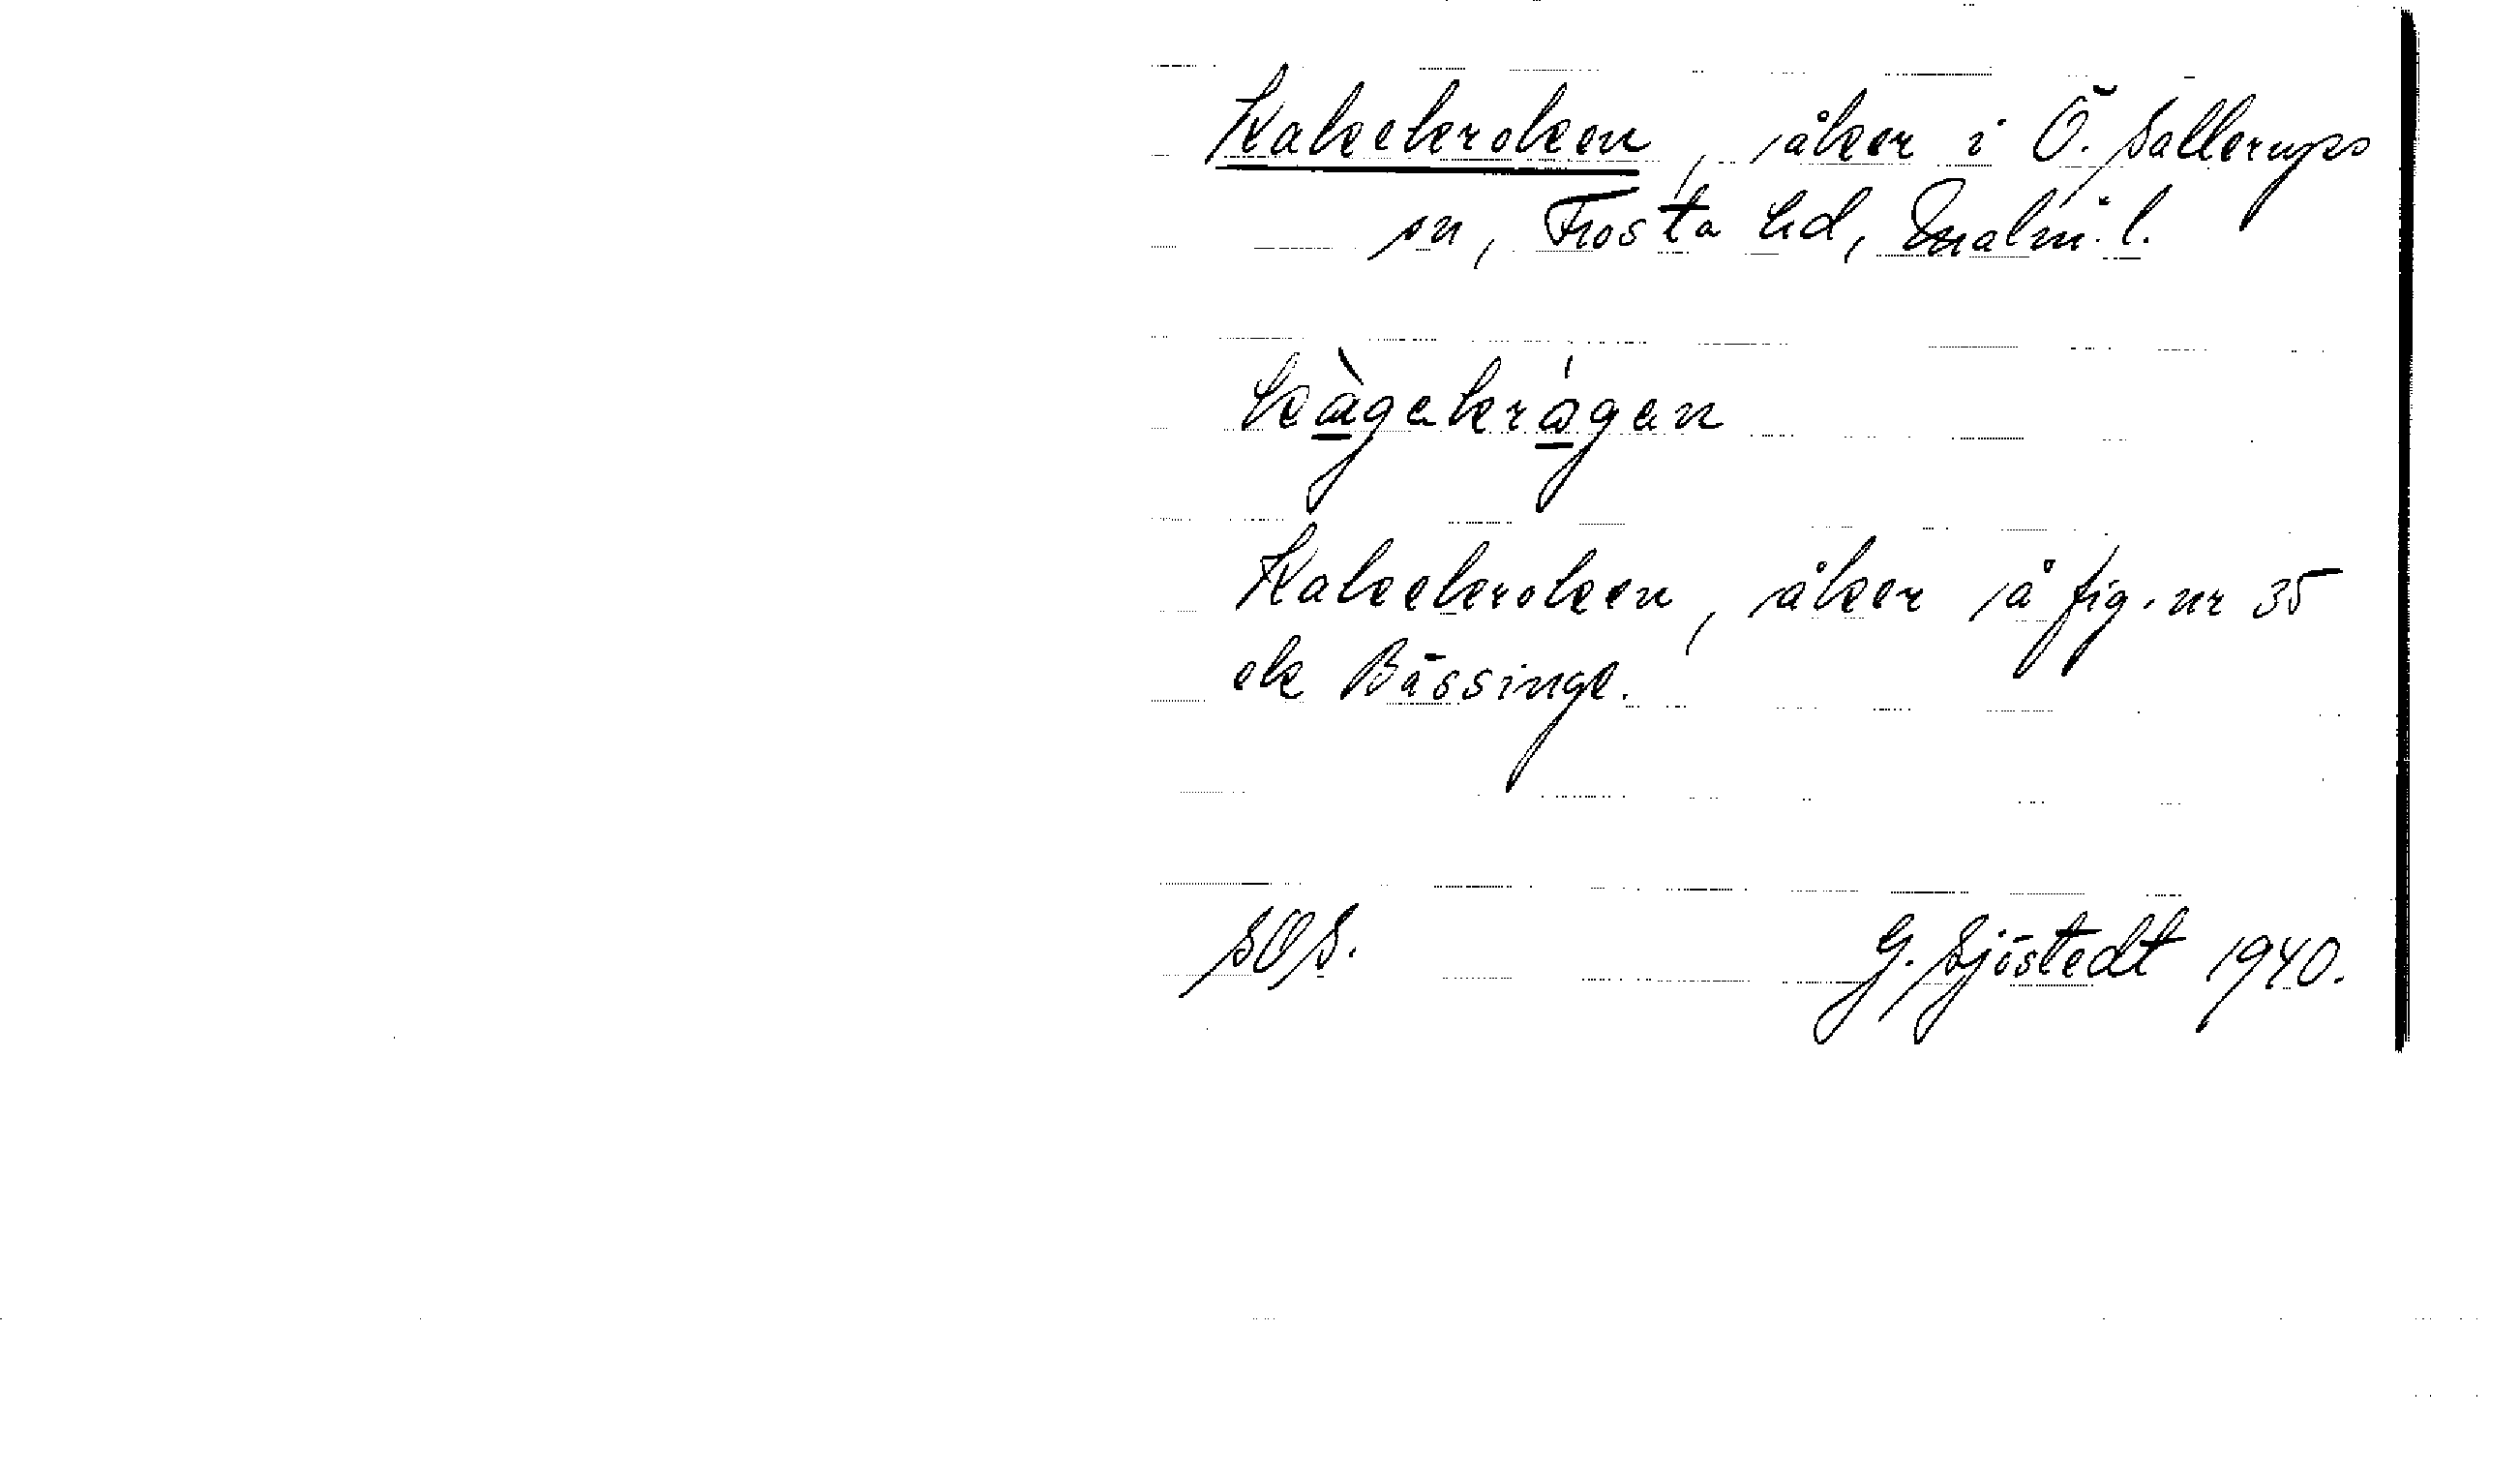 Kakekroken, åker i Ö. Sallerups
sn, Frosta hd, Malm. l.
kàgekrágen
Kakekroken, åker å fig. nr 35
ek Bässinge.
SOS. G. Sjöstedt 1940.